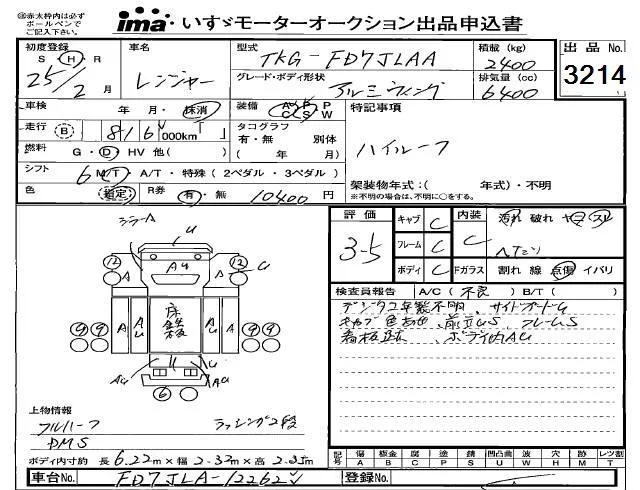 ㊟赤太枠内は必ず
ボールペンで
ご記入下さい。
ima いすゞモーターオークション出品申込書
初度登録 S H R 25年 2月
車名 レンジャー
型式 TKG-FD7JLAA
積載 (kg) 2400
出品No. 3214
グレード・ボディ形状 アルミウィング
排気量 (cc) 6400
車検 年 月・抹消
装備 A/C A/B P C S W
特記事項
走行 B 816,000km T
タコグラフ 有・無 別体 ( 年 月)
ハイルーフ
燃料 G・D・HV 他( )
シフト 6 M/T・A/T・特殊 (2ペダル・3ペダル)
架装物年式:( 年式)・不明
※不明の場合は、不明に○をする。
色 鑑定 R券 有・無 10400円
評価 3-5
キャブ C
フレーム C
ボディ C
内装 C
汚れ 破れ
Fガラス 割れ 線 点傷 イバリ
ミラーA
U
AU
12 12
A A
U
9 9 9 9
A AU 床鉄板 AU A
U
AU AU
6
検査員報告 A/C( 不良 ) B/T( )
デジタコ年製不明、サイドガードU
キャブ色あせ、前立US、フレームS
看板跡、ボディ内AU
上物情報
フルハーフ ラッシング2段
DMS
ボディ内寸約 長 6.22m×幅 2.32m×高 2.35m
記号 傷A 板金B 腐C 塗P 錆S 凹凸曲U 波W 穴H 跡M レツ割T
車台No. FD7JLA-12262
登録No.